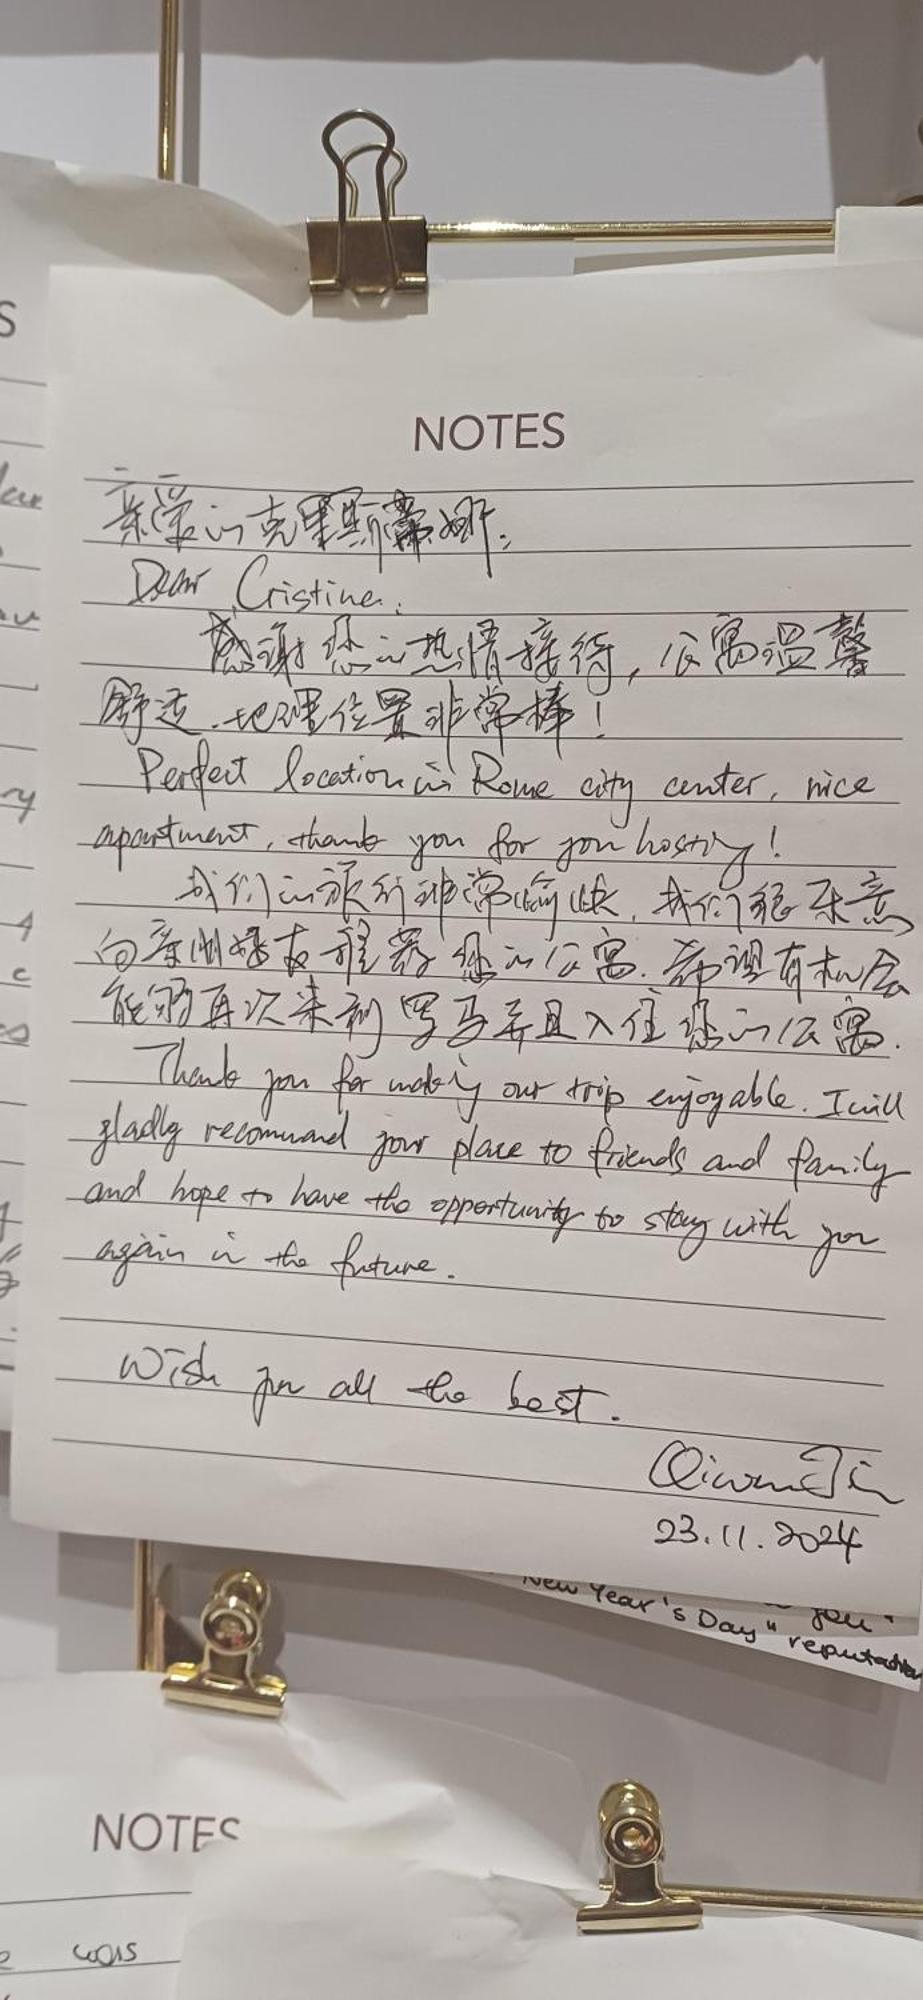 NOTES
亲爱的克里斯蒂娜:
Dear Cristine:
感谢您的热情接待,公寓温馨
舒适.地理位置非常棒!
Perfect location in Rome city center, nice
apartment, thank you for you hosting!
我们的旅行非常愉快,我们很乐意
向亲朋好友推荐您的公寓.希望有机会
能够再次来到罗马并且入住您的公寓.
Thank you for making our trip enjoyable. I will
gladly recommand your place to friends and family
and hope to have the opportunity to stay with you
again in the future.
Wish you all the best.
23.11.2024
you.
New Year's Day" reputation
NOTES
was